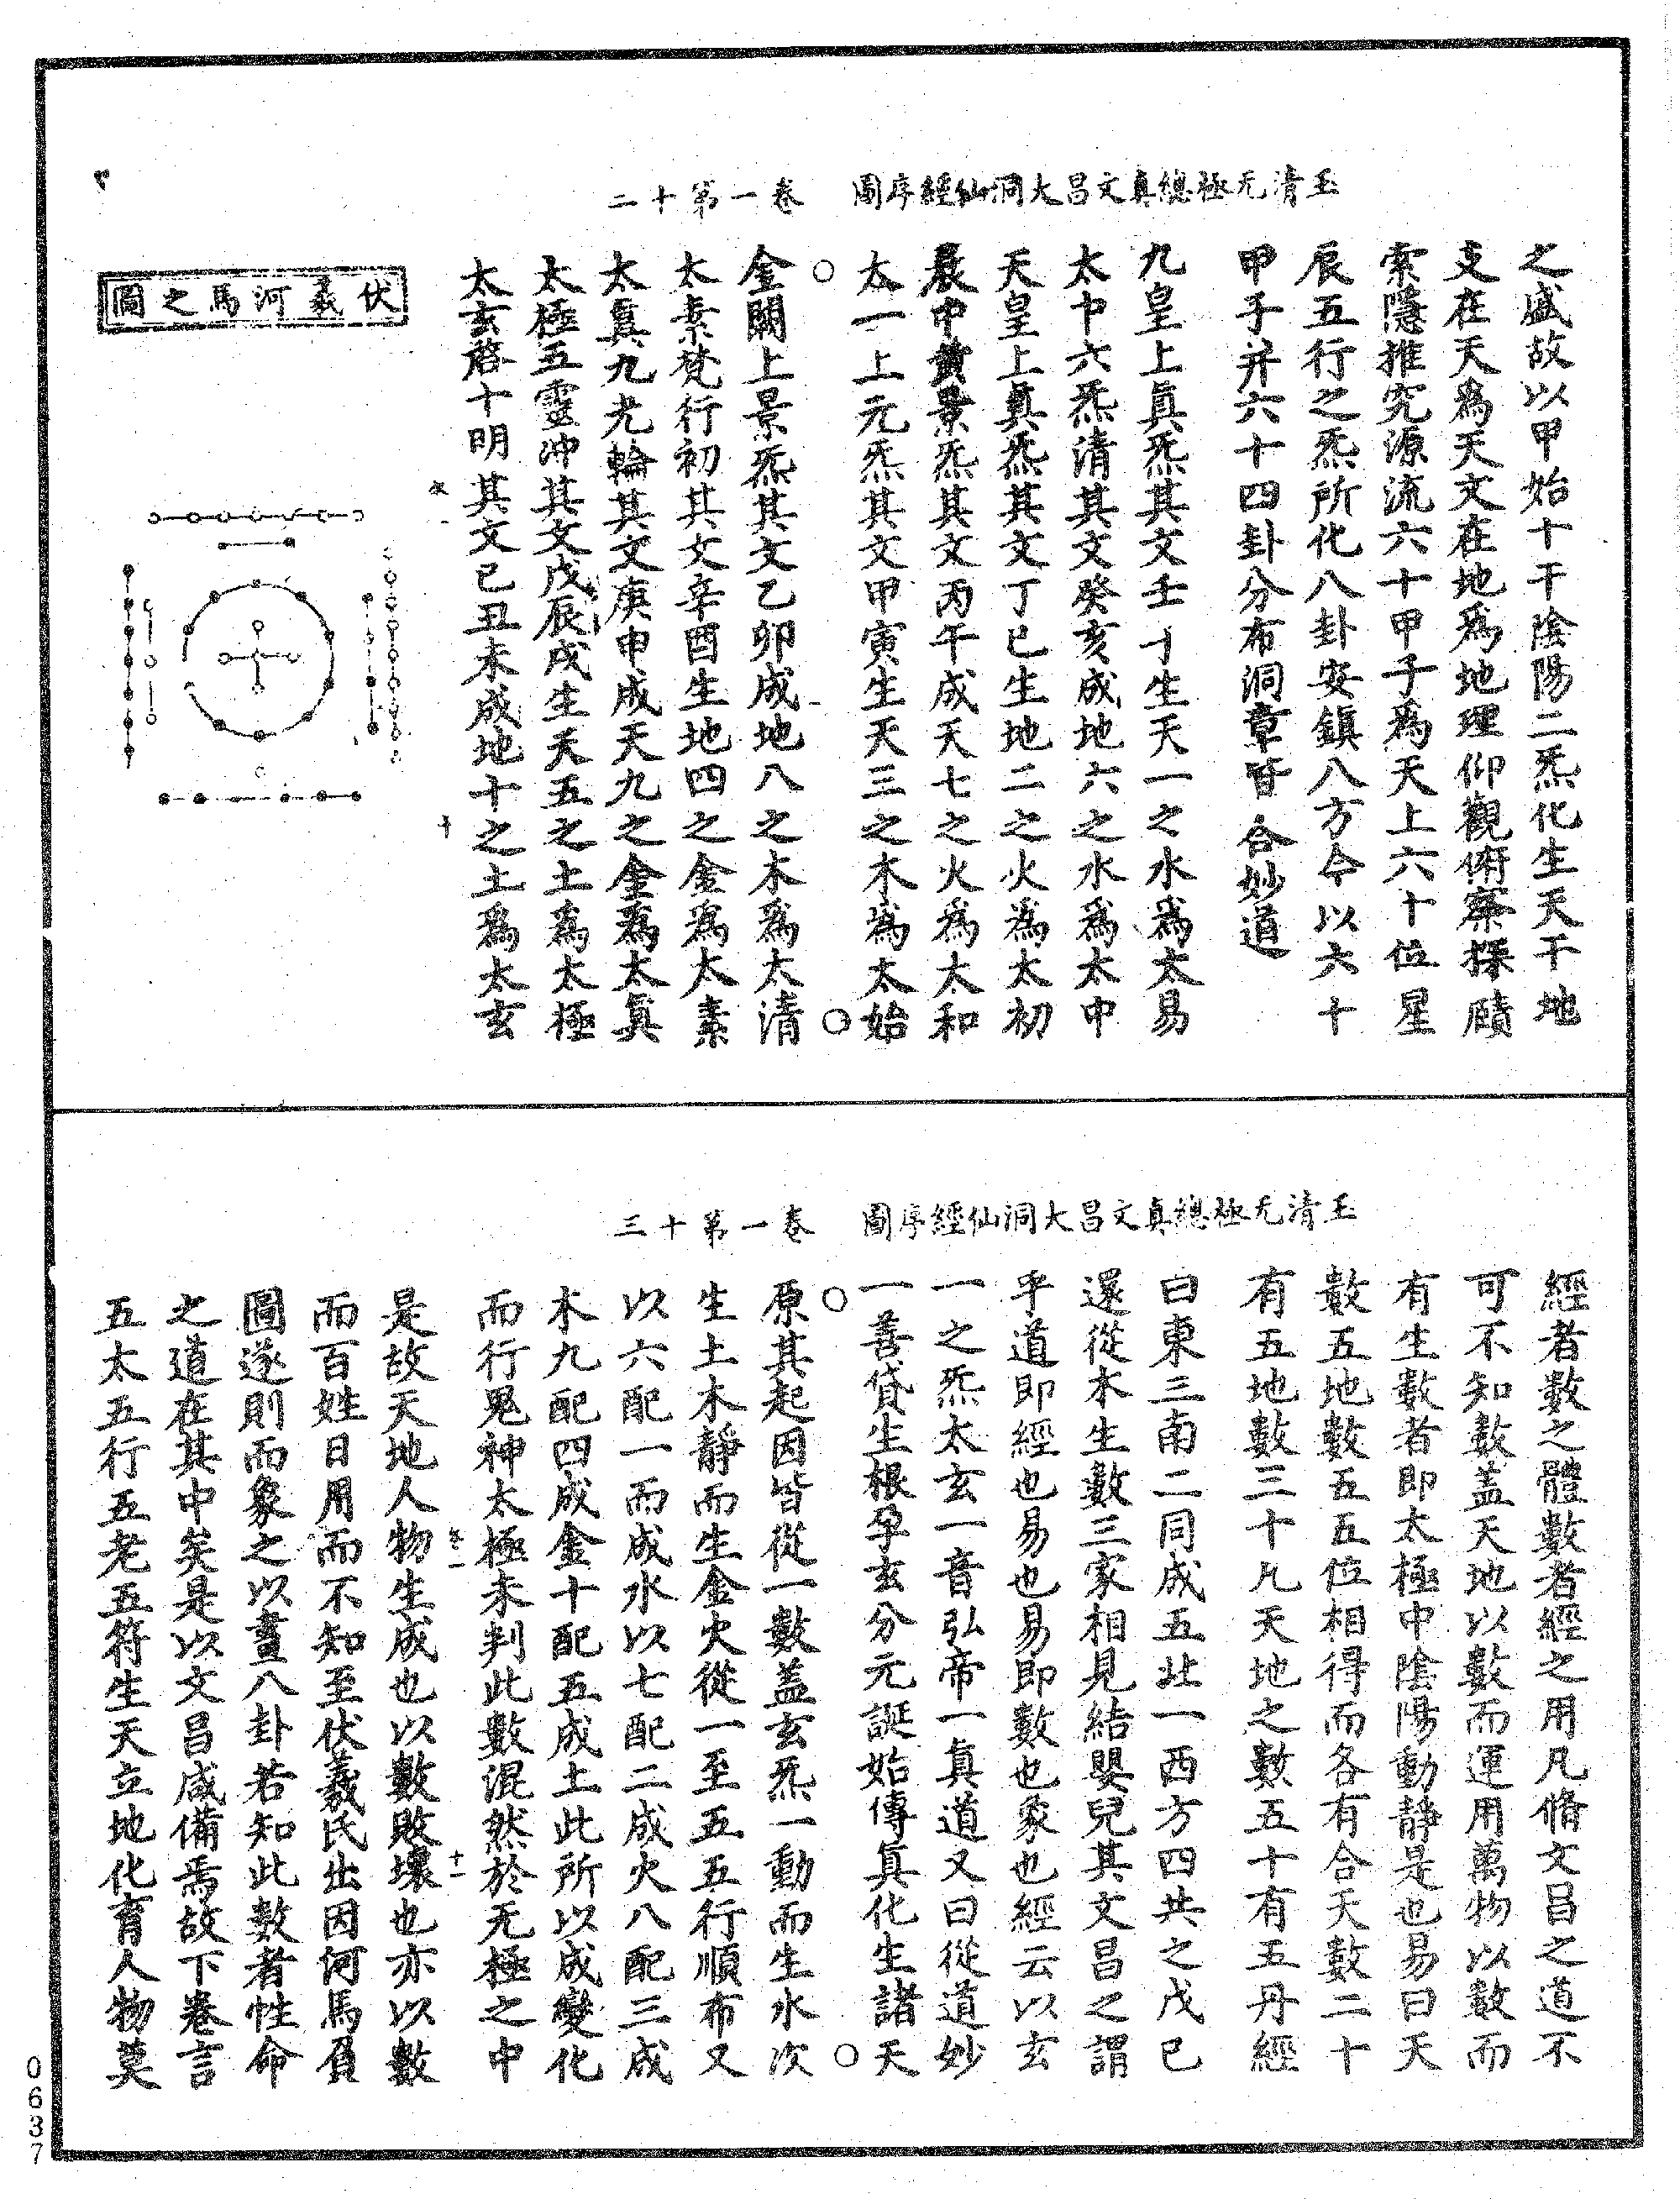 玉清无極總真文昌大洞仙經序圖　卷一第十二
之盛故以甲始十干陰陽二炁化生天干地
支在天爲天文在地爲地理仰觀俯察探賾
索隱推究源流六十甲子爲天上六十位星
辰五行之炁所化八卦安鎮八方今以六十
甲子并六十四卦分布洞章皆合妙道
九皇上眞炁其文壬子生天一之水爲太易
太中六炁清其文癸亥成地六之水爲太中
天皇上眞炁其文丁巳生地二之火爲太初
晨中黄景炁其文丙午成天七之火爲太和
太一上元炁其文甲寅生天三之木爲太始
○
金闕上景炁其文乙卯成地八之木爲太清
太素梵行初其文辛酉生地四之金爲太素
太眞九光輪其文庚申成天九之金爲太眞
太極五靈沖其文戊辰戌生天五之土爲太極
太玄啓十明其文己丑未成地十之土爲太玄
伏羲河馬之圖
玉清无極總真文昌大洞仙經序圖　卷一第十三
經者數之體數者經之用凡脩文昌之道不
可不知數盖天地以數而運用萬物以數而
有生數者即太極中陰陽動靜是也易曰天
數五地數五五位相得而各有合天數二十
有五地數三十凡天地之數五十有五丹經
曰東三南二同成五北一西方四共之戊己
還從本生數三家相見結嬰兒其文昌之謂
乎道即經也易也易即數也象也經云以玄
一之炁太玄一音弘帝一眞道又曰從道妙
一善貸生根孕玄分元誕始傳眞化生諸天
○
原其起因皆從一數盖玄炁一動而生水次
生土木靜而生金火從一至五五行順布又
以六配一而成水以七配二成火八配三成
木九配四成金十配五成土此所以成變化
而行鬼神太極未判此數混然於无極之中
是故天地人物生成也以數敗壞也亦以數
而百姓日用而不知至伏羲氏出因河馬負
圖遂則而象之以畫八卦若知此數者性命
之道在其中矣是以文昌咸備焉故下卷言
五太五行五老五符生天立地化育人物莫
0637